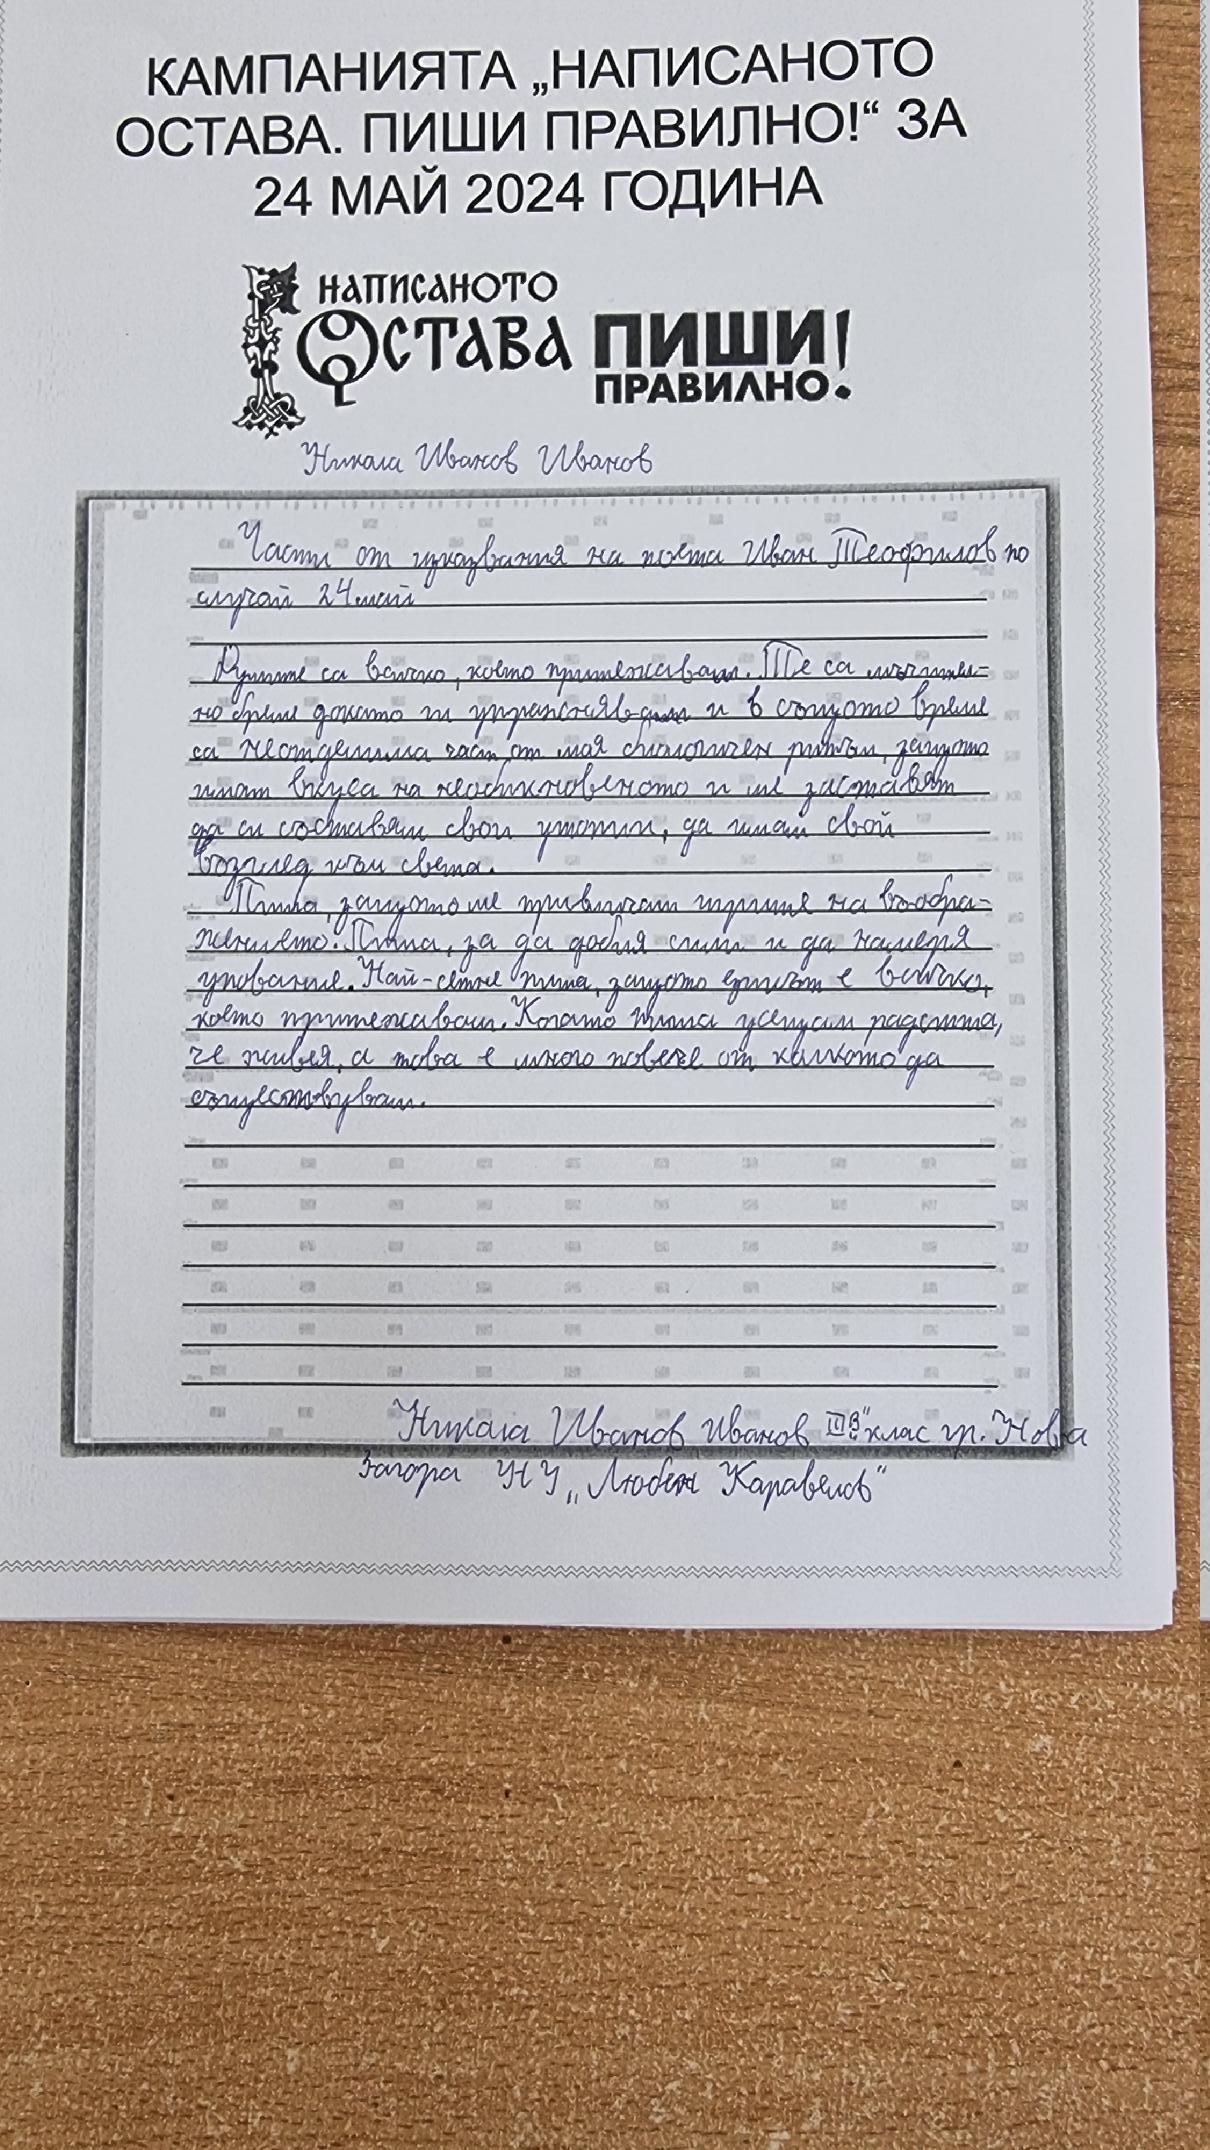 КАМПАНИЯТА „НАПИСАНОТО
ОСТАВА. ПИШИ ПРАВИЛНО!“ ЗА
24 МАЙ 2024 ГОДИНА
НАПИСАНОТО
ОСТАВА ПИШИ!
ПРАВИЛНО!
Никола Иванов Иванов
Части от изказвания на поета Иван Теофилов по
случай 24 май
Думите са всичко, което притежавам. Те са мъчител=
но бреме докато ги упражнявам и в същото време
са неотделима част от моя биологичен ритъм, защото
имат вкуса на необикновеното и ме заставят
да си съставям свои утопии, да имам свой
възглед към света.
Пиша, защото ме привличат игрите на въобра-
жението. Пиша, за да добия сили и да намеря
упование. Най-сетне пиша, защото езикът е всичко,
което притежавам. Когато пиша усещам радостта,
че живея, а това е много повече от колкото да
съществувам.
Никола Иванов Иванов III "в" клас гр. Нова
Загора НУ „Любен Каравелов"